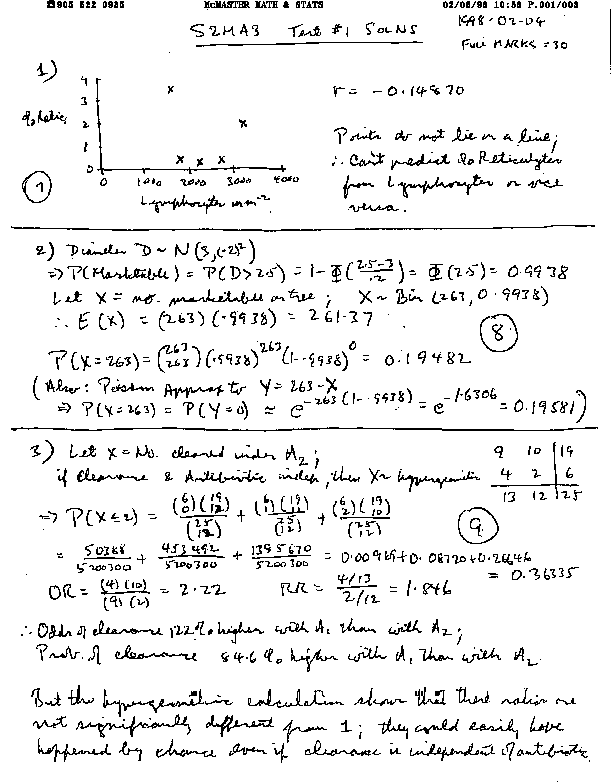 ☎905 522 0935 McMASTER MATH & STATS 02/06/98 10:58 P.001/003
S2MA3 Test #1 SOLNS 1998-02-04
FULL MARKS = 30
1)
4
3
2
1
0
% Retics
0 1000 2000 3000 4000
Lymphocytes mm⁻²
7
r = -0.14870
Points do not lie on a line;
∴ Can't predict % Reticulytes
from Lymphocytes or vice
versa.
2) Diameter D ~ N(3, (.2)²)
⇒ P(Marketable) = P(D>2.5) = 1 - Φ((2.5-3)/.2) = Φ(2.5) = 0.9938
Let X = no. marketable on tree; X ~ Bin (263, 0.9938)
∴ E(X) = (263)(.9938) = 261.37
8
P(X=263) = (263 263)(.9938)²⁶³(1-.9938)⁰ = 0.19482
(Also: Poisson Approx to Y = 263-X
⇒ P(X=263) = P(Y=0) ≈ e^-263(1-.9938) = e^-1.6306 = 0.19581)
3) Let X = No. cleared under A₂;
if Clearance & Antibiotic indep, then X ~ hypergeometric
9 10 19
4 2 6
13 12 25
⇒ P(X≤2) = (6 0)(19 12)/(25 12) + (6 1)(19 11)/(25 12) + (6 2)(19 10)/(25 12)
9
= 50388/5200300 + 453492/5200300 + 1385670/5200300 = 0.00969+0.08720+0.26646
= 0.36335
OR = (4)(10)/(9)(2) = 2.22 RR = 4/13 / 2/12 = 1.846
∴ Odds of clearance 122% higher with A₁ than with A₂;
Prob. of clearance 84.6% higher with A₁ than with A₂.
But the hypergeometric calculation shows that these ratios are
not significantly different from 1; they could easily have
happened by chance even if clearance is independent of antibiotic